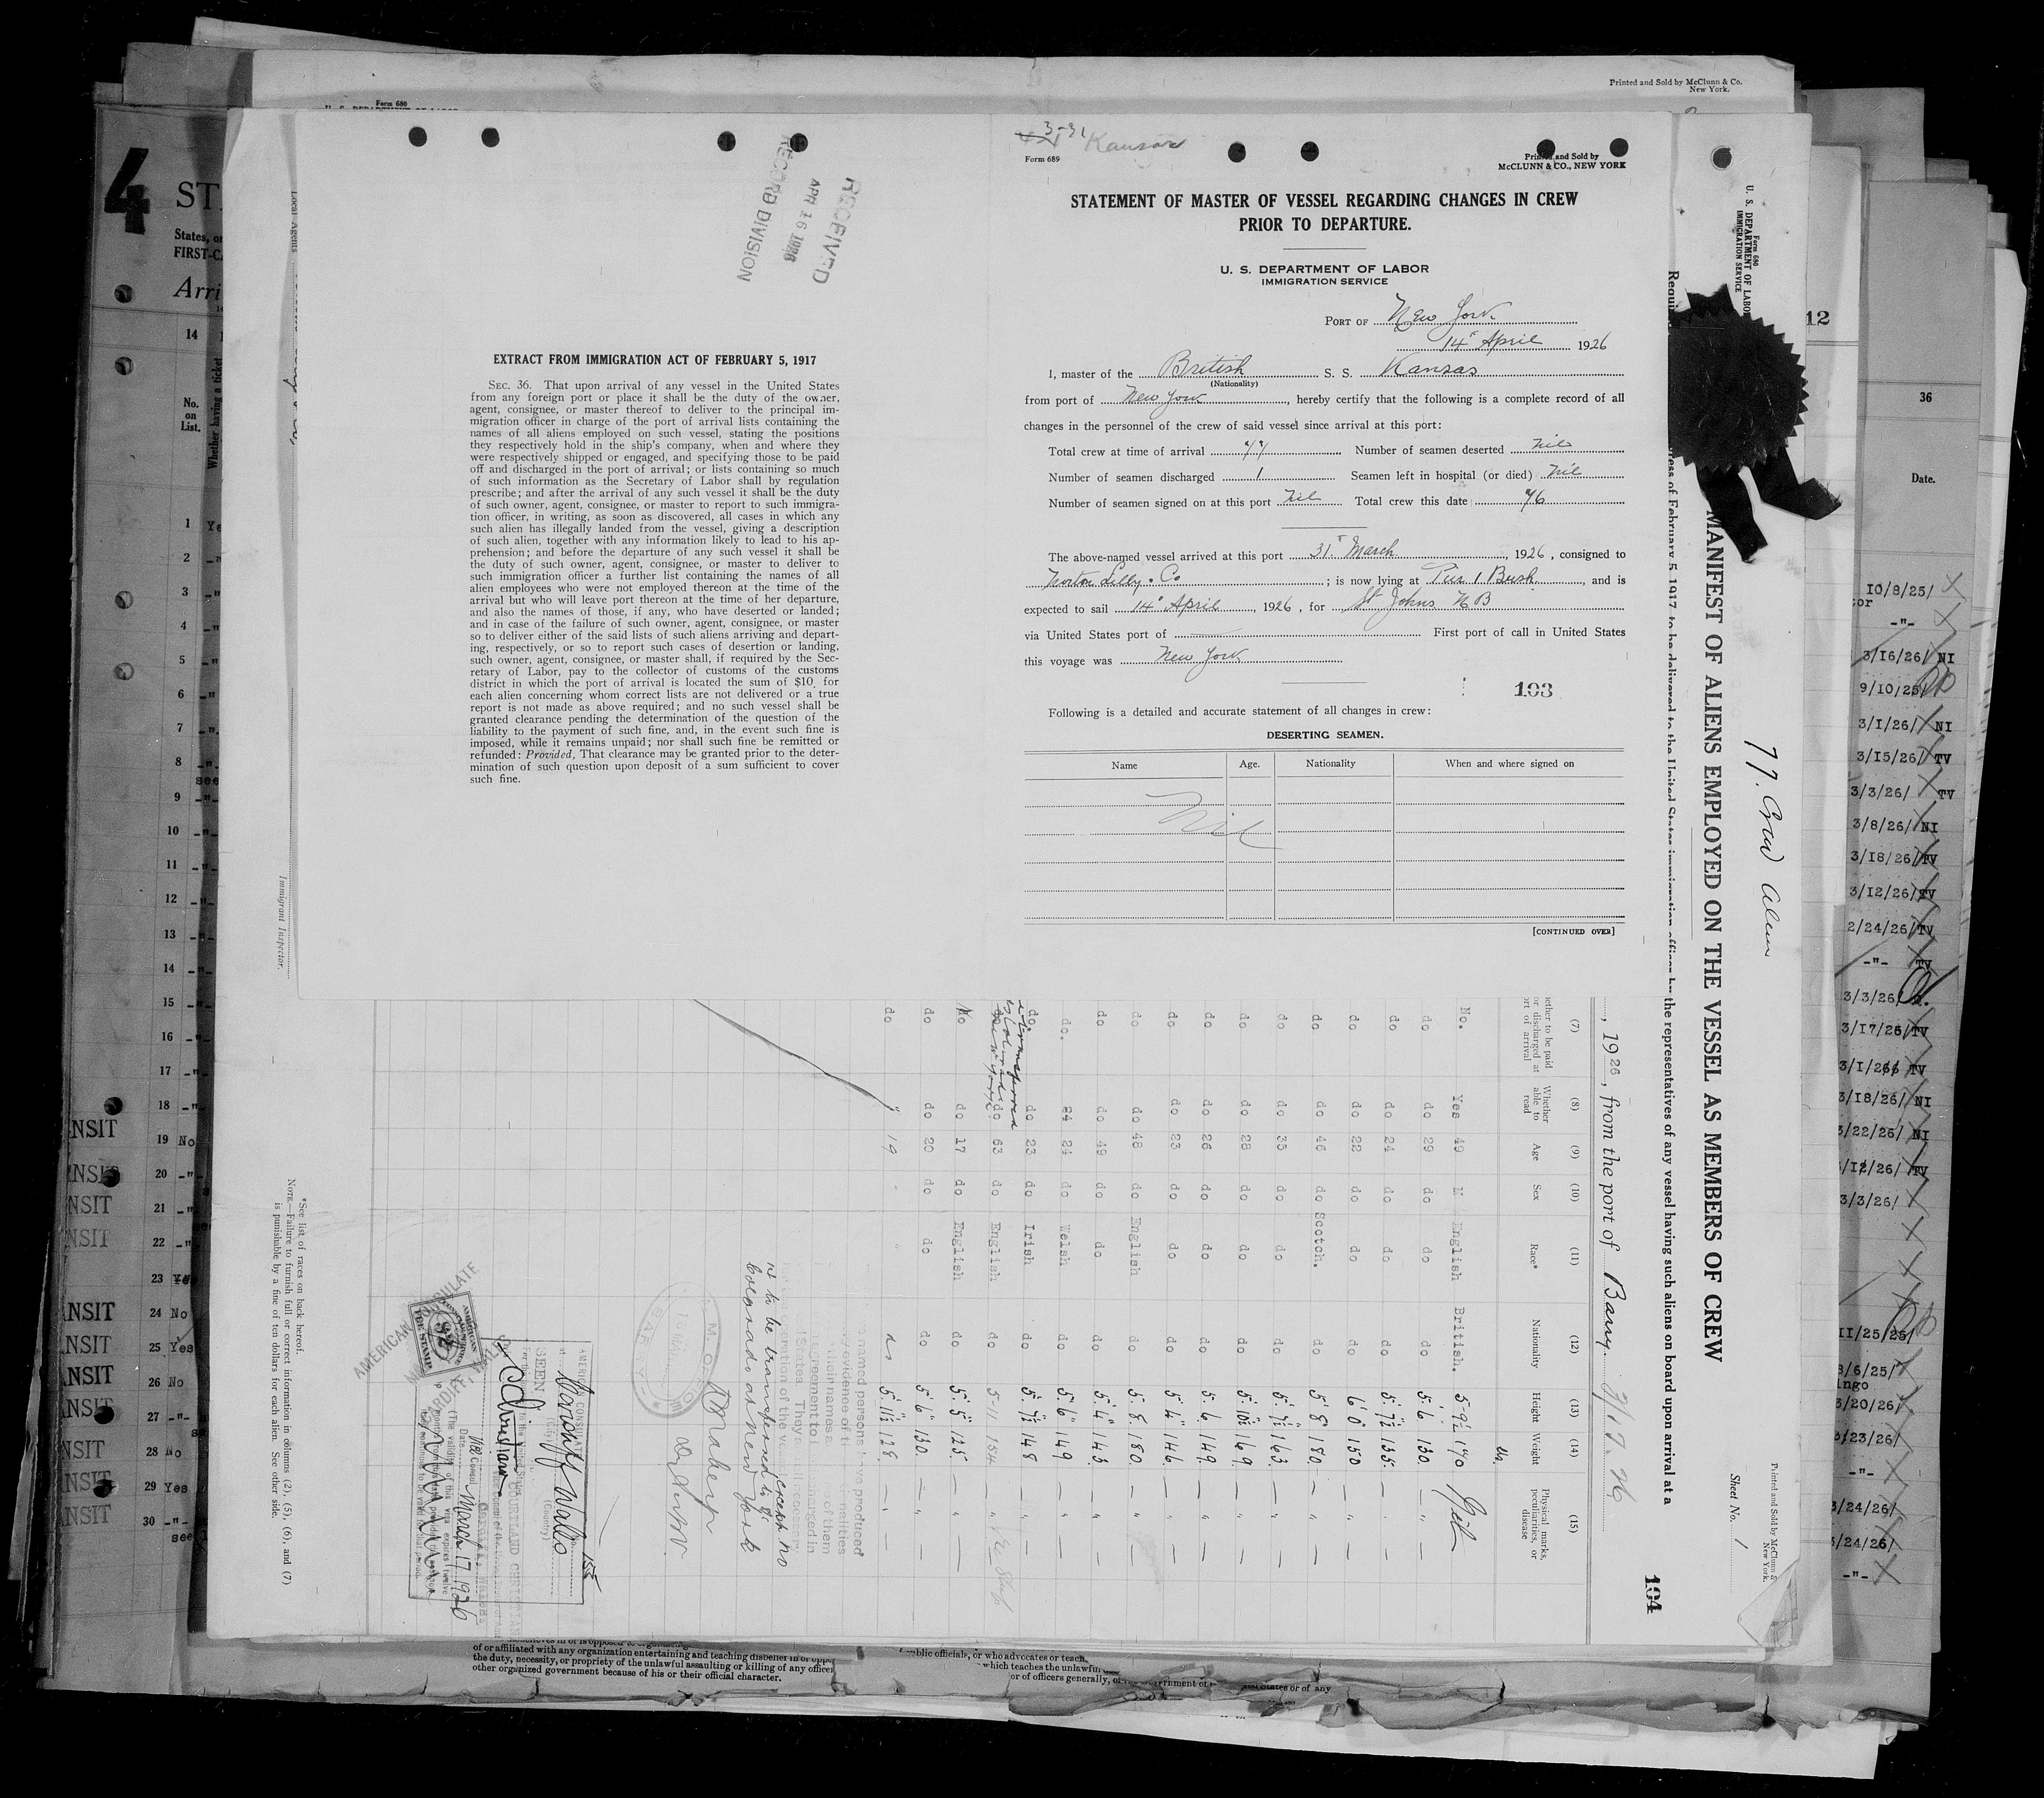 Printed and Sold by McClunn & Co.
New York.
Form 680
4
States, or
FIRST-C
Arri
14
No.
on
List.
Whether having a ticket
RECEIVED
APR 16 1926
RECORD DIVISION
EXTRACT FROM IMMIGRATION ACT OF FEBRUARY 5, 1917
SEC. 36. That upon arrival of any vessel in the United States
from any foreign port or place it shall be the duty of the owner,
agent, consignee, or master thereof to deliver to the principal im-
migration officer in charge of the port of arrival lists containing the
names of all aliens employed on such vessel, stating the positions
they respectively hold in the ship's company, when and where they
were respectively shipped or engaged, and specifying those to be paid
off and discharged in the port of arrival; or lists containing so much
of such information as the Secretary of Labor shall by regulation
prescribe; and after the arrival of any such vessel it shall be the duty
of such owner, agent, consignee, or master to report to such immigra-
tion officer, in writing, as soon as discovered, all cases in which any
such alien has illegally landed from the vessel, giving a description
of such alien, together with any information likely to lead to his ap-
prehension; and before the departure of any such vessel it shall be
the duty of such owner, agent, consignee, or master to deliver to
such immigration officer a further list containing the names of all
alien employees who were not employed thereon at the time of the
arrival but who will leave port thereon at the time of her departure,
and also the names of those, if any, who have deserted or landed;
and in case of the failure of such owner, agent, consignee, or master
so to deliver either of the said lists of such aliens arriving and depart-
ing, respectively, or so to report such cases of desertion or landing,
such owner, agent, consignee, or master shall, if required by the Sec-
retary of Labor, pay to the collector of customs of the customs
district in which the port of arrival is located the sum of $10, for
each alien concerning whom correct lists are not delivered or a true
report is not made as above required; and no such vessel shall be
granted clearance pending the determination of the question of the
liability to the payment of such fine, and, in the event such fine is
imposed, while it remains unpaid; nor shall such fine be remitted or
refunded: Provided, That clearance may be granted prior to the deter-
mination of such question upon deposit of a sum sufficient to cover
such fine.
3-31 Kansas
Form 689
Printed and Sold by
McCLUNN & CO., NEW YORK
STATEMENT OF MASTER OF VESSEL REGARDING CHANGES IN CREW
PRIOR TO DEPARTURE.
U. S. DEPARTMENT OF LABOR
IMMIGRATION SERVICE
PORT OF New York
14" April 1926
I, master of the British S. S. Kansas
(Nationality)
from port of New York, hereby certify that the following is a complete record of all
changes in the personnel of the crew of said vessel since arrival at this port:
Total crew at time of arrival 77 Number of seamen deserted Nil
Number of seamen discharged 1 Seamen left in hospital (or died) Nil
Number of seamen signed on at this port Nil Total crew this date 76
The above-named vessel arrived at this port 31st March, 1926, consigned to
Norton Lilly & Co; is now lying at Pier 1 Bush, and is
expected to sail 14" April, 1926, for St Johns N B
via United States port of First port of call in United States
this voyage was New York
103
Following is a detailed and accurate statement of all changes in crew:
DESERTING SEAMEN.
Name Age. Nationality When and where signed on
Nil
[CONTINUED OVER]
Local Agents
Immigrant Inspector.
Form 680
U. S. DEPARTMENT OF LABOR
IMMIGRATION SERVICE
MANIFEST OF ALIENS EMPLOYED ON THE VESSEL AS MEMBERS OF CREW
77. Crew Aliens
Printed and Sold by McClunn &
New York.
Sheet No. 1
104
ress of February 5, 1917, to be delivered to the United States immigration officer by the representatives of any vessel having such aliens on board upon arrival at a
, 1926, from the port of Barry.
(7) (8) (9) (10) (11) (12) (13) (14) (15)
Whether able to read Age Sex Race* Nationality Height Weight Physical marks, peculiarities, or disease
No. Yes 49 M English British. 5-9½ 170 Nil
do do 29 do do do 5'.6 130
do do 24 do do do 5'.7½ 135
do do 22 do do do 6'0" 150
do do 46 do Scotch. do 5'8" 180
do do 35 do do do 5'.7½ 163
do do 28 do do do 5'.10½ 169
do do 26 do do do 5.6 149
do do 23 do do do 5'.4" 146
do do 48 do English do 5.8 180
do do 49 do do do 5'.4" 143
do. 24 do Welsh do 5'.6" 149
do. do 23 do Irish do 5'.7½ 148
do 63 do English do 5-11 154
No do 17 do English do 5'.5" 125
do do 20 do do do 5'.6" 130
do " 19 5'.11½ 128
transferred
Colorado
New York
no to be transferred to SS
Colorado at New York
AMERICAN CONSULATE
at Cardiff Wales
(City) (County)
SEEN
Vice Consul
Date March 17 1926
AMERICAN CONSULATE
FEE STAMP
*See list of races on back hereof.
NOTE.—Failure to furnish full or correct information in columns (2), (5), (6), and (7)
is punishable by a fine of ten dollars for each alien. See other side.
1 Ye
2 -"
3 -"
4 -"
5 -"
6 -"
7 -"
8 -"
see
9 -"-
10 -"-
11 -"-
12 -"-
13 -"-
14 -"-
15 -"-
16 -"-
17 -"-
18 -"-
NSIT 19 No
NSIT 20 -"-
NSIT 21 -"-
NSIT 22 -"-
23 Yes
ANSIT 24 No
ANSIT 25 Yes
ANSIT 26 No
ANSIT 27 -"-
NSIT 28 No
ANSIT 29 Yes
ANSIT 30 -"-
see
12
36
Date.
10/8/25/
tor
-"-
3/16/26/ NI
9/10/25/
3/1/26/ NI
3/15/26/ TV
3/3/26/ TV
3/8/26/ NI
3/18/26/ TV
3/12/26/ TV
2/24/26/ TV
-"- TV
3/3/26/
3/17/26/ TV
3/1/26/ TV
3/18/26/ NI
3/22/26/ NI
/12/26/ TV
3/3/26/
11/25/25/
3/6/25/
ingo
3/20/26/
3/23/26/
-"-
3/24/26/
3/24/26/
-"-
of or affiliated with any organization entertaining and teaching disbelief in or oppo
the duty, necessity, or propriety of the unlawful assaulting or killing of any officer
other organized government because of his or their official character.
public officials, or who advocates or teach
which teaches the unlawfu
or of officers generally, of
States or of any